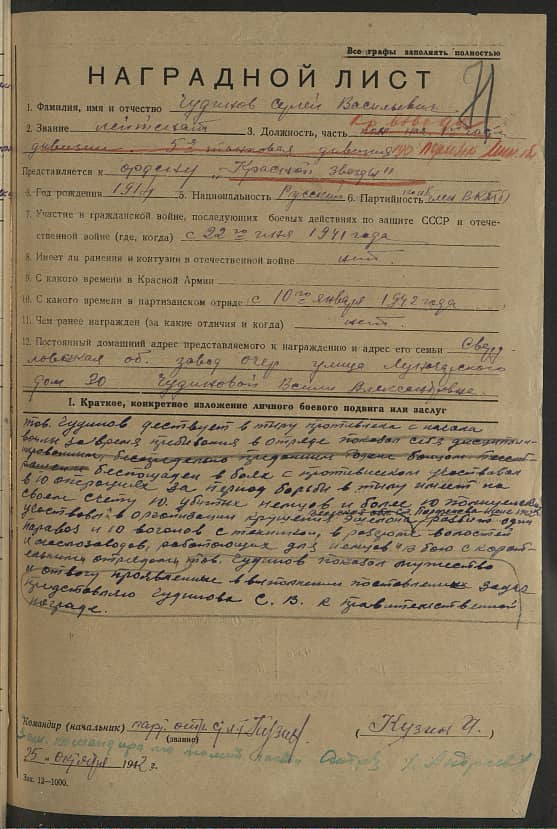 Все графы заполнять полностью
НАГРАДНОЙ ЛИСТ
1. Фамилия, имя и отчество Чудинов Сергей Васильевич
2. Звание лейтенант 3. Должность, часть
дивизии 52 танковая дивизия
Представляется к ордену „Красной звезды"
4. Год рождения 1914 5. Национальность Русский 6. Партийность член ВКП(б)
7. Участие в гражданской войне, последующих боевых действиях по защите СССР и отече-
ственной войне (где, когда) с 22го июня 1941 года
8. Имеет ли ранения и контузии в отечественной войне нет.
9. С какого времени в Красной Армии
10. С какого времени в партизанском отряде с 10го января 1942 года
11. Чем ранее награжден (за какие отличия и когда) нет.
12. Постоянный домашний адрес представляемого к награждению и адрес его семьи Сверд-
ловская об. завод очер улица Луначарского
дом 20 Чудиновой Александровне
I. Краткое, конкретное изложение личного боевого подвига или заслуг
тов. Чудинов действует в тылу противника с начала
войны за время пребывания в отряде показал себя дисциплин-
ированным, преданным бойцом.
Беспощаден в боях с противником участвовал
в 10 операциях за период борьбы в тылу имеет на
своем счету 10 убитых немцев и более 10 полицейских
участвовал в организации крушения эшелона, один
паровоз и 10 вагонов с танками, в разгроме волостей
и маслозаводов, работающих для немцев в бою с карат-
ельными отрядами тов. Чудинов показал мужество
и отвагу проявленные в выполнении поставленных задач
Представляю Чудинова С. В. к правительственной
награде.
Командир (начальник) парт. отряда Кузин
(звание)
( Кузин И. )
Зам. командира по полит части Андреев
25 „ октября 1942 г.
Зак. 12—1000.